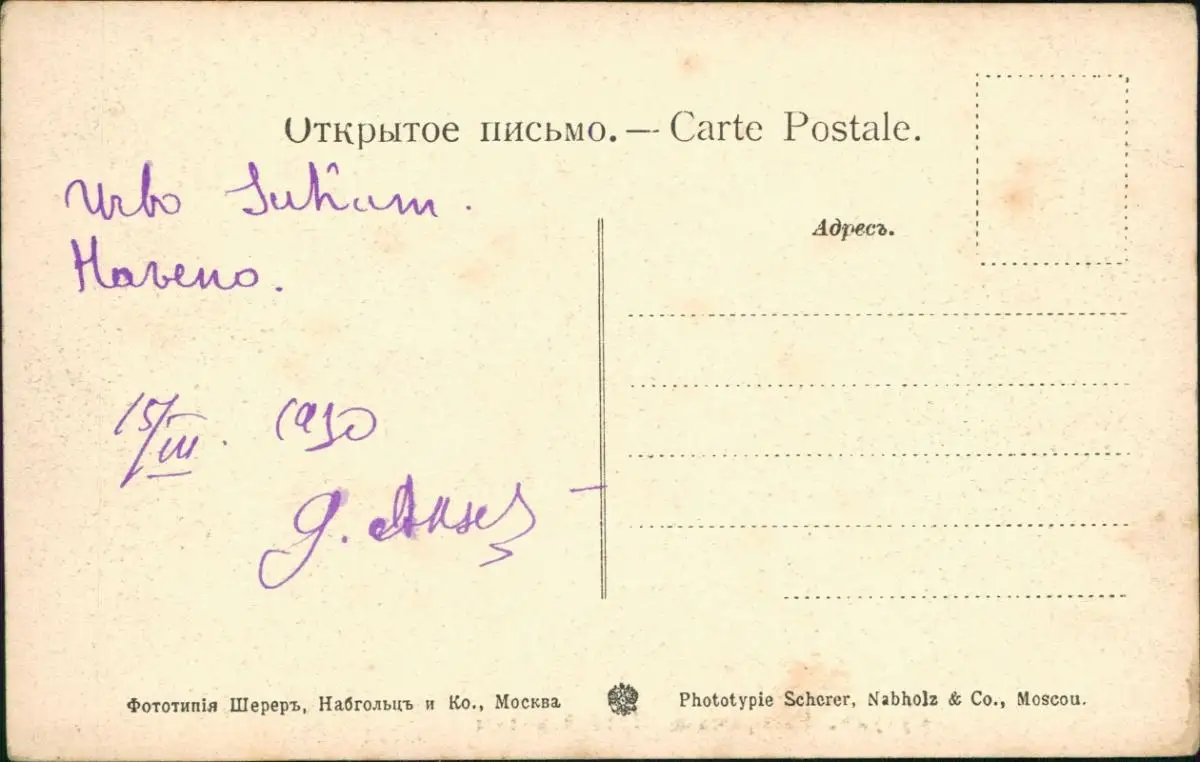 Открытое письмо. — Carte Postale.
Urbo Suĥum.
Haveno.
Адресъ.
15/III. 1930
Фототипія Шереръ, Набгольцъ и Ко., Москва
Phototypie Scherer, Nabholz & Co., Moscou.